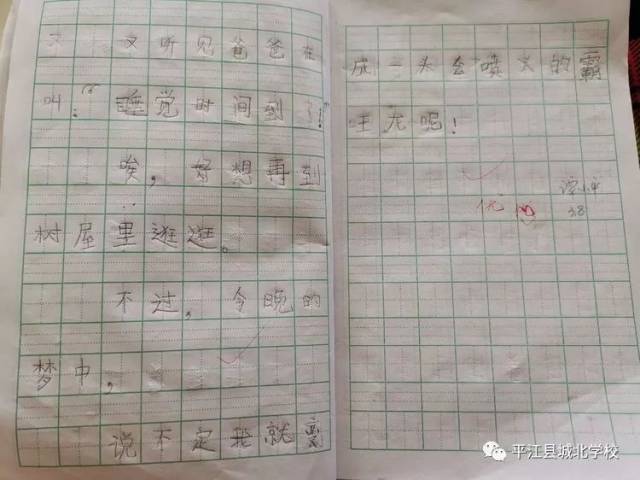 又听见爸爸在
叫：“睡觉时间到了！
唉，好想再到
树屋里逛逛。
不过，今晚的
梦中，
说不定我就变
成一头会喷火的霸
王龙呢！
优
38
平江县城北学校